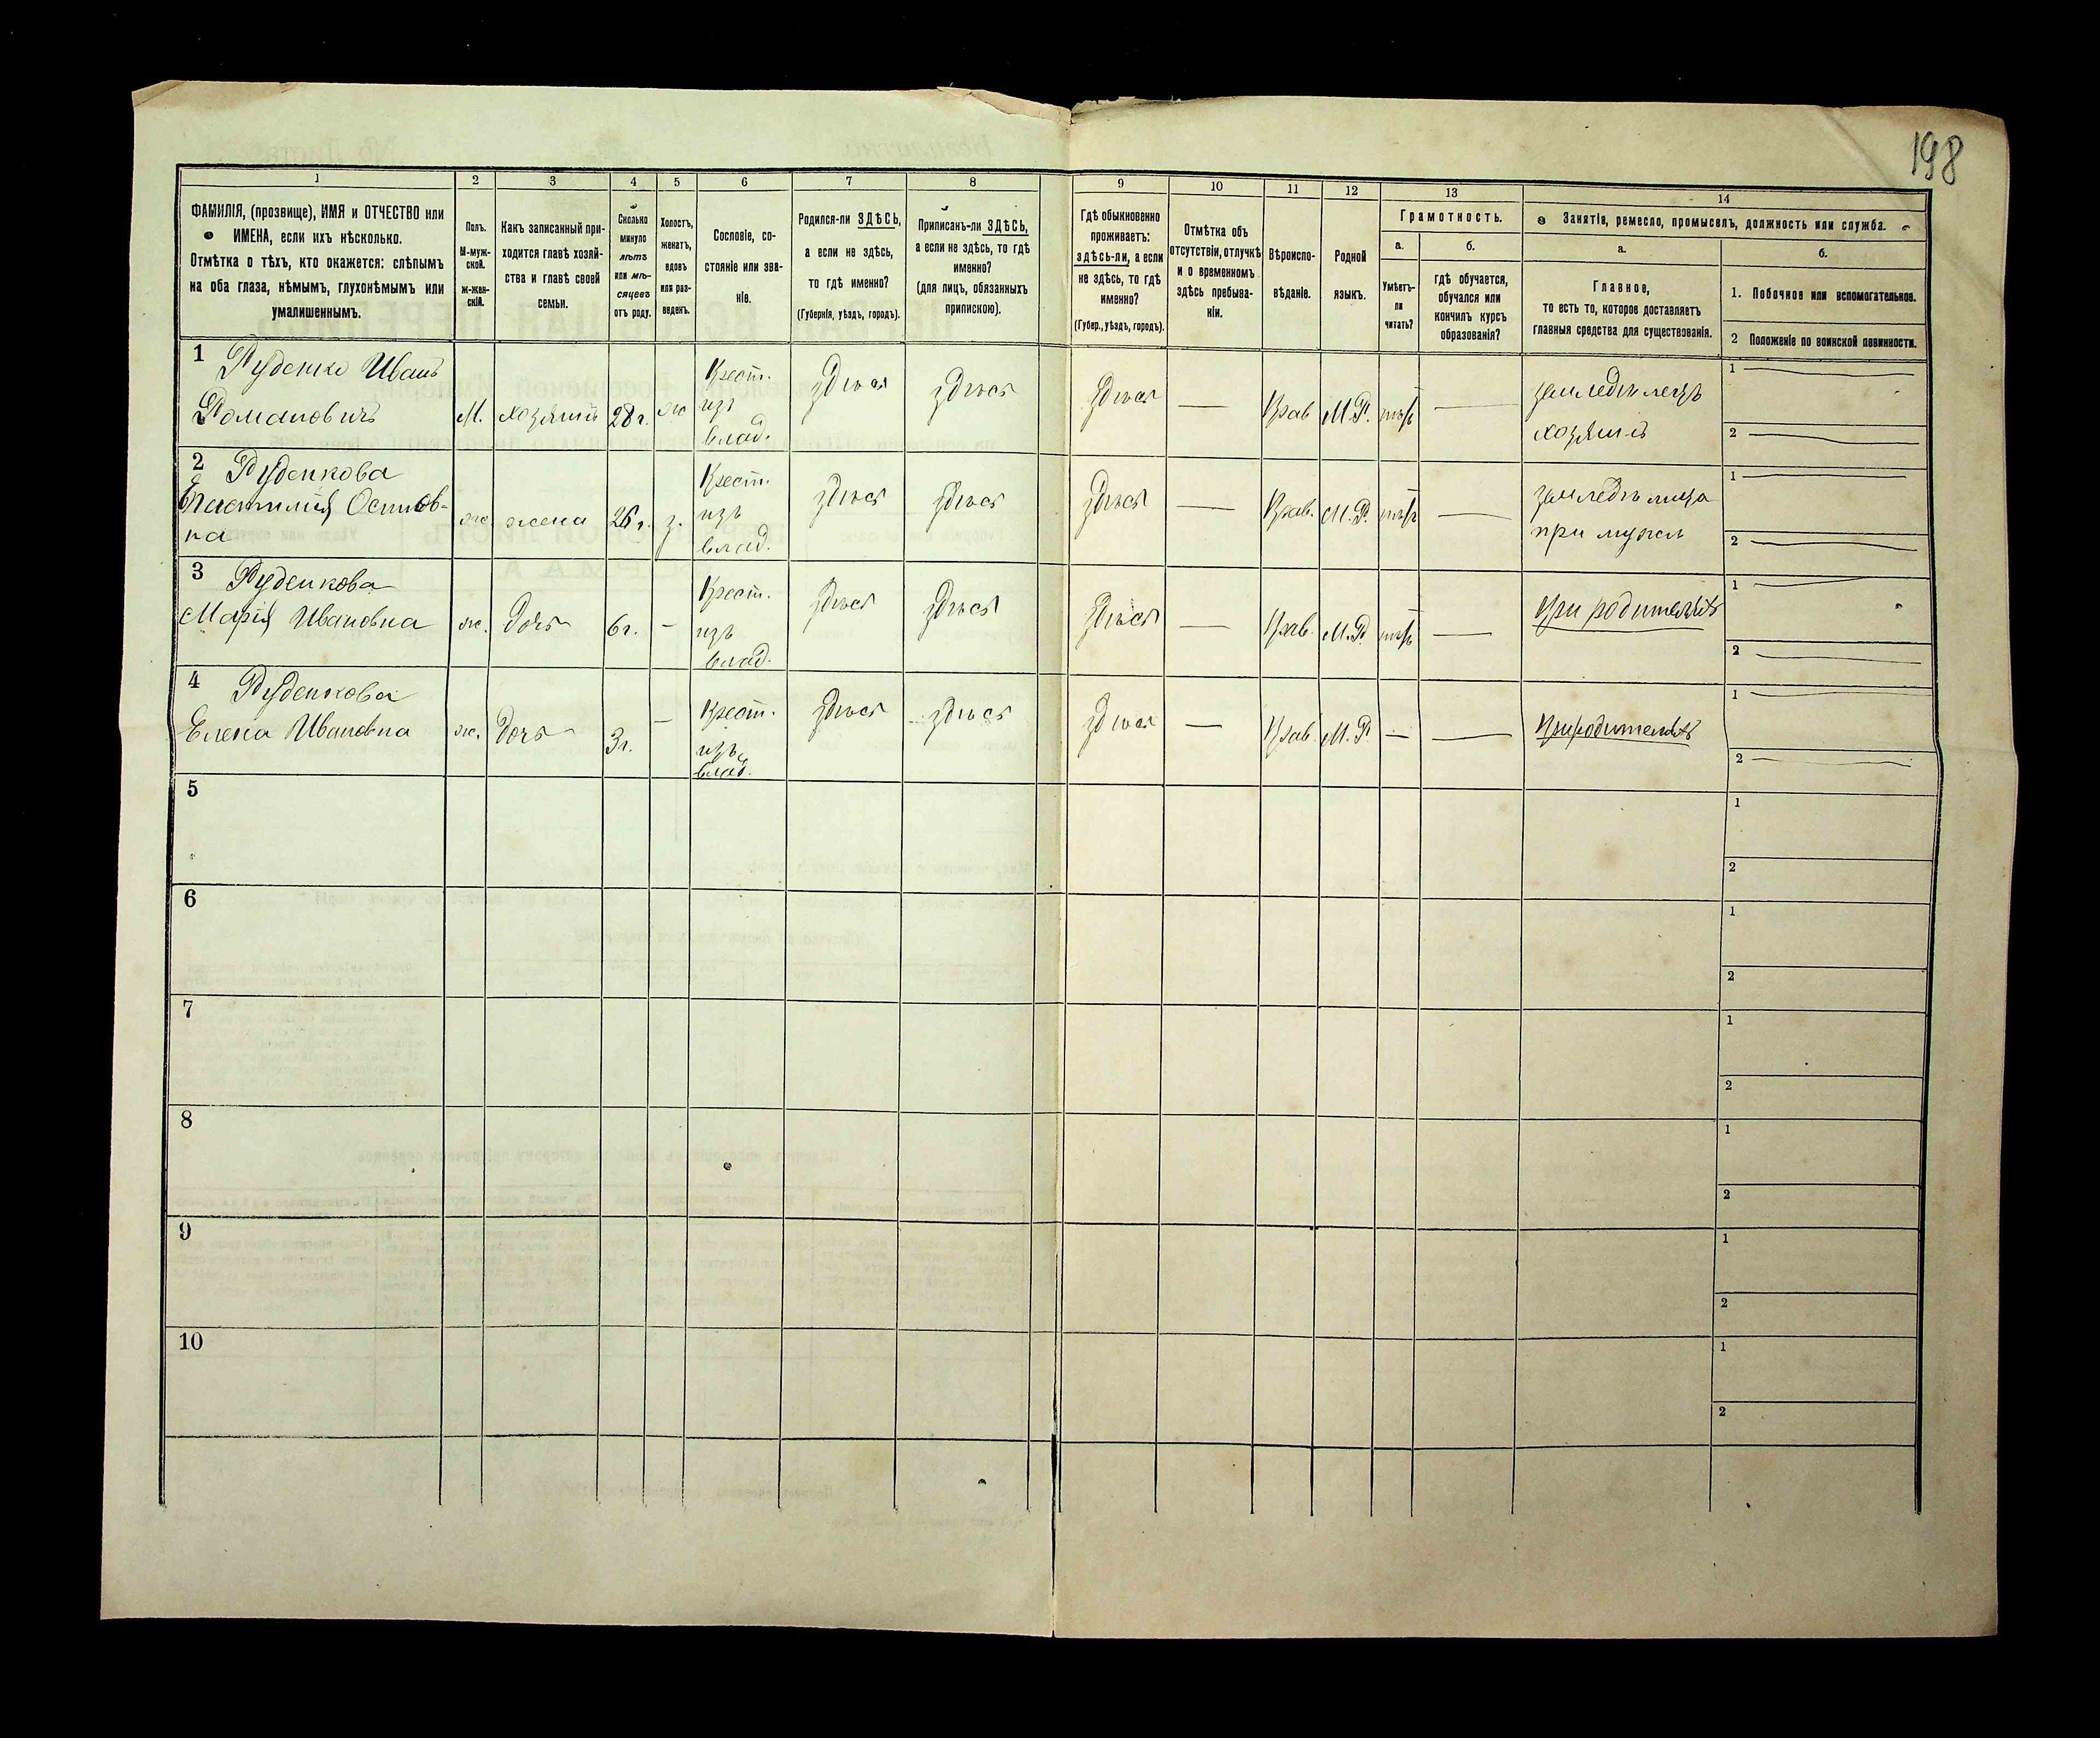 198
1
2
3
4
5
6
7
8
9
10
11
12
13
14
ФАМИЛІЯ, (прозвище), ИМЯ и ОТЧЕСТВО или
ИМЕНА, если ихъ нѣсколько.
Отмѣтка о тѣхъ, кто окажется: слѣпымъ
на оба глаза, нѣмымъ, глухонѣмымъ или
умалишеннымъ.
Полъ.
М-муж-
ской.
Ж-жен-
скій.
Какъ записанный при-
ходится главѣ хозяй-
ства и главѣ своей
семьи.
Сколько
минуло
лѣтъ
или мѣ-
сяцевъ
отъ роду.
Холостъ,
женатъ,
вдовъ
или раз-
веденъ.
Сословіе, со-
стояніе или зва-
ніе.
Родился-ли ЗДѢСЬ,
а если не здѣсь,
то гдѣ именно?
(Губернія, уѣздъ, городъ).
Приписанъ-ли ЗДѢСЬ,
а если не здѣсь, то гдѣ
именно?
(для лицъ, обязанныхъ
припискою).
Гдѣ обыкновенно
проживаетъ:
здѣсь-ли, а если
не здѣсь, то гдѣ
именно?
(Губер., уѣздъ, городъ).
Отмѣтка объ
отсутствіи, отлучкѣ
и о временномъ
здѣсь пребыва-
ніи.
Вѣроиспо-
вѣданіе.
Родной
языкъ.
Грамотность.
а.
б.
Умѣетъ-
ли
читать?
гдѣ обучается,
обучался или
кончилъ курсъ
образованія?
Занятія, ремесло, промыселъ, должность или служба.
а.
б.
Главное,
то есть то, которое доставляетъ
главныя средства для существованія.
1. Побочное или вспомогательное.
2 Положеніе по воинской повинности.
1 Руденко Иванъ
Романовичъ
М.
хозяинъ
28 г.
ж
Крест.
изъ
влад.
здѣсь
здѣсь
здѣсь
—
Прав
М.Р.
нѣтъ
—
земледѣлецъ
хозяинъ
1
2
2 Руденкова
Осипов-
на
ж.
жена
26 г.
з.
Крест.
изъ
влад.
здѣсь
здѣсь
здѣсь
—
Прав.
М.Р.
нѣтъ
—
при мужѣ
1
2
3 Руденкова
Марія Ивановна
ж.
дочь
6 г.
—
Крест.
изъ
влад.
здѣсь
здѣсь
здѣсь
—
Прав.
М.Р.
нѣтъ
—
при родителяхъ
1
2
4 Руденкова
Елена Ивановна
ж.
дочь
3 г.
—
Крест.
изъ
влад.
здѣсь
здѣсь
здѣсь
—
Прав.
М.Р.
—
—
при родителяхъ
1
2
5
1
2
6
1
2
7
1
2
8
1
2
9
1
2
10
1
2